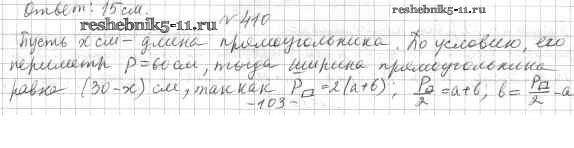 Ответ: 15 см.
reshebnik5-11.ru
№ 410
reshebnik5-11.ru
Пусть x см – длина прямоугольника. По условию, его
периметр P = 60 см, тогда ширина прямоугольника
равна (30-x) см, так как P▭ = 2(a+b); P▭/2 = a+b; b = P▭/2 - a
-103-